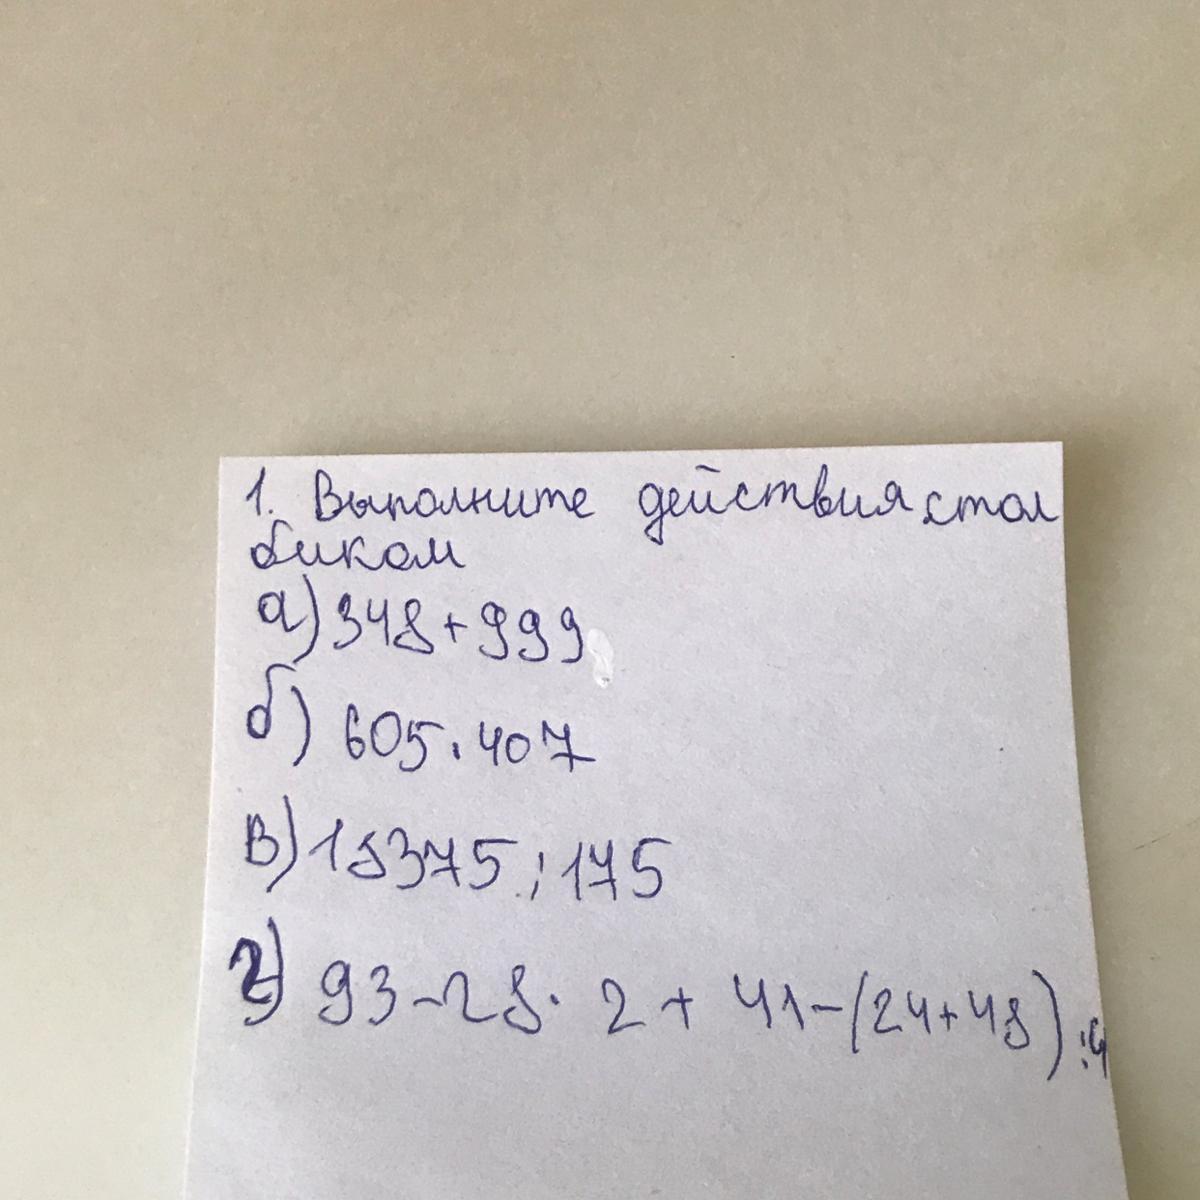 1. Выполните действия стол
биком
а) 348+999
б) 605·407
в) 18375:175
г) 93-28·2+41-(24+48):4